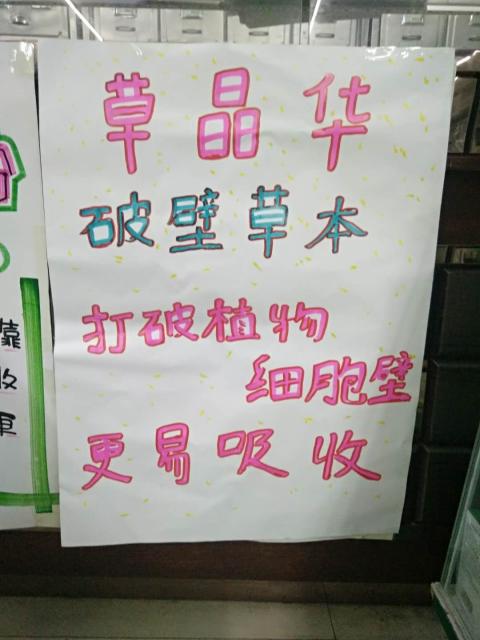 草晶华
破壁草本
打破植物
细胞壁
更易吸收
靠
收